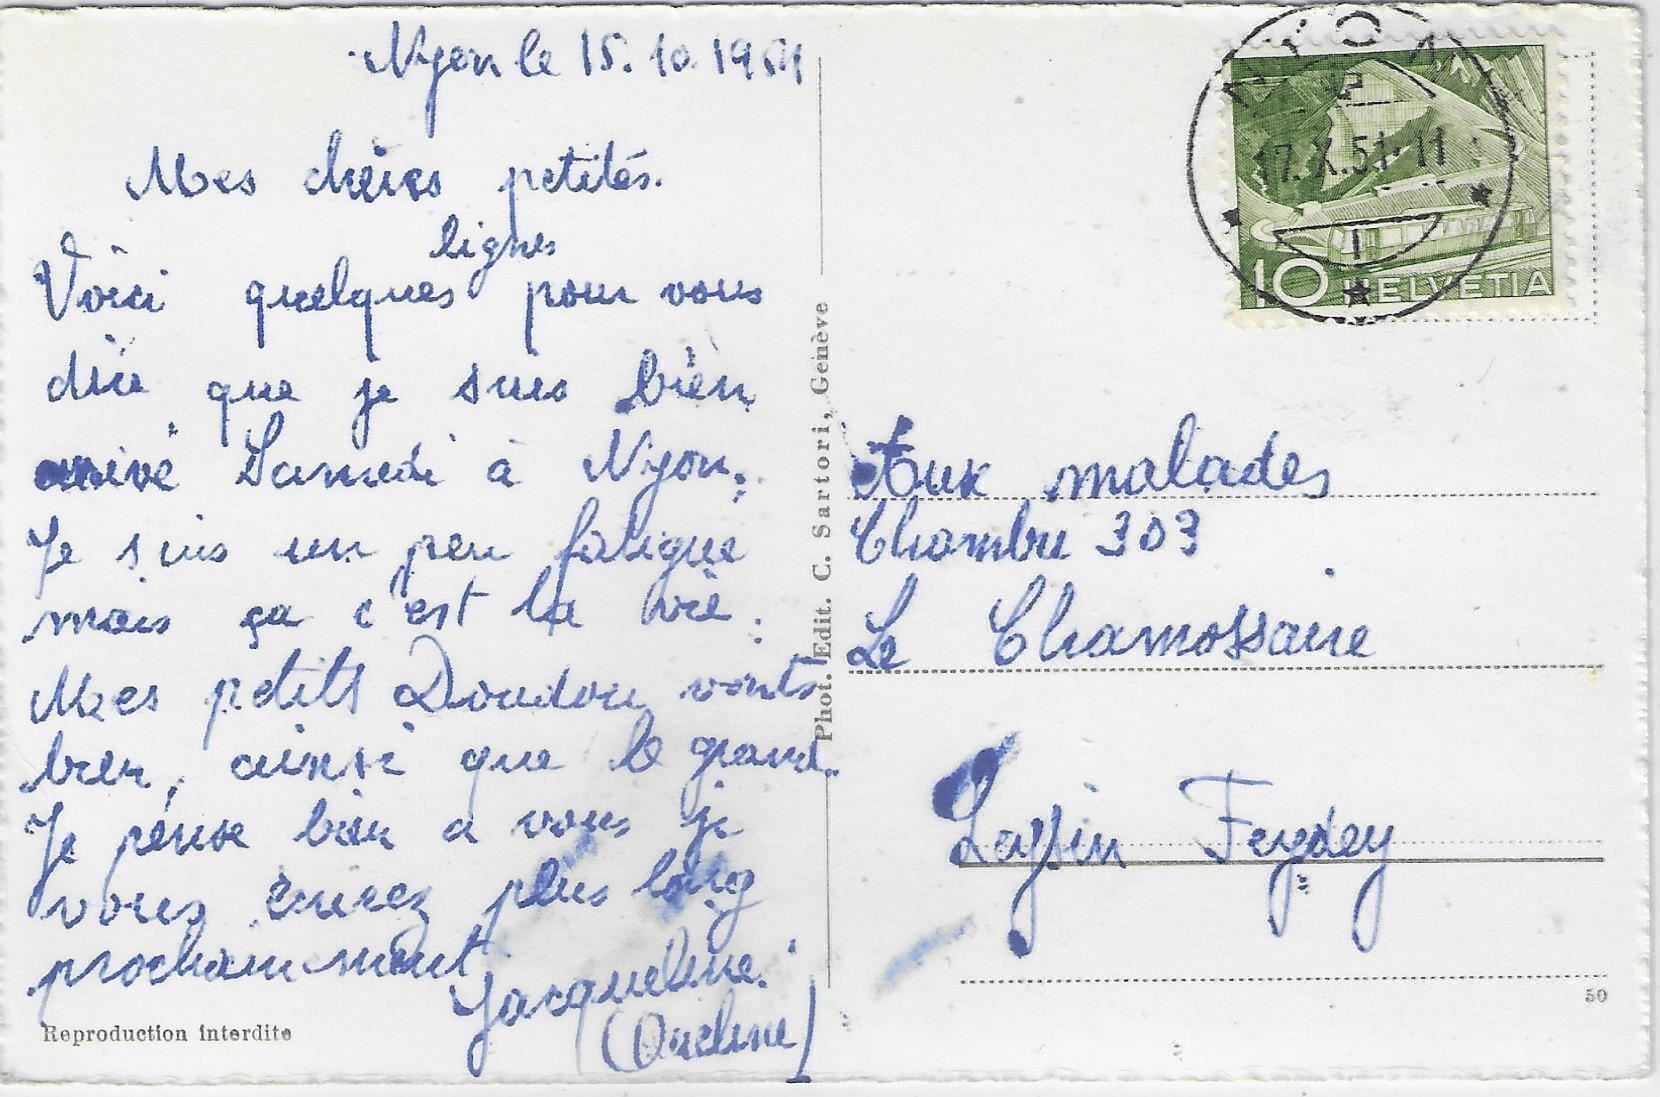 Nyon le 15.10.1951
Mes chères petites.
lignes
Voici quelques pour vous
dire que je suis bien
arrivé Samedi à Nyon.
Je suis un peu fatigue
mais ça c'est la vie.
Mes petits Doudou vonts
bien, ainsi que le grand.
Je pense bien a vous je
vous écirez plus long
prochainement
Jacqueline.
(Oueline)
Reproduction interdite
Phot. Edit. C. Sartori, Genève
NYON
17.X.51-11
1
10 HELVETIA
Aux malades
Chambre 303
Le Chamossaire
Leysin Feydey
50